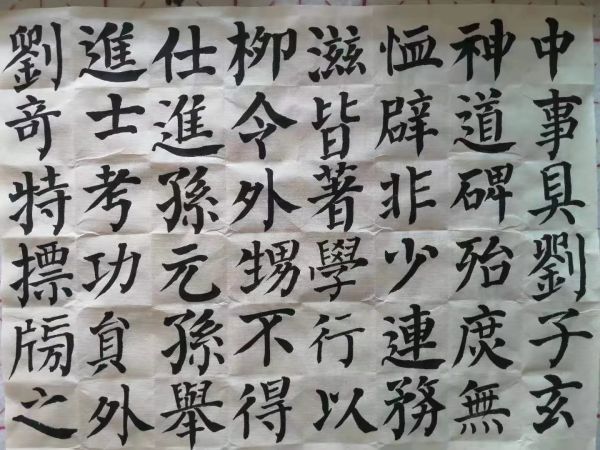 中事具劉子玄
神道碑殆庶無
恤辟非少連務
滋皆著學行以
柳令外甥不得
仕進孫元孫舉
進士考功貟外
劉奇特標牓之